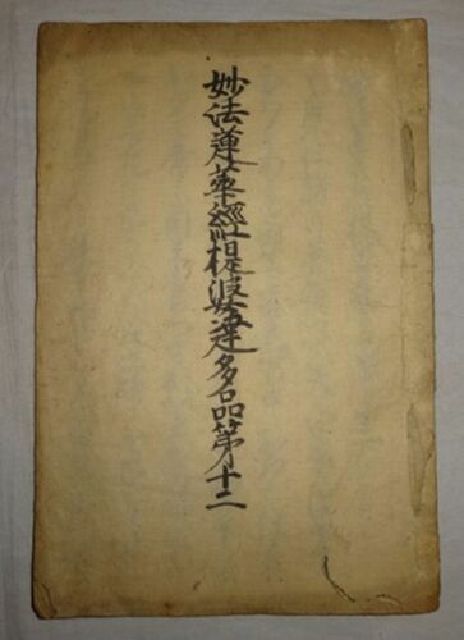 妙法蓮華經提婆達多品第十二